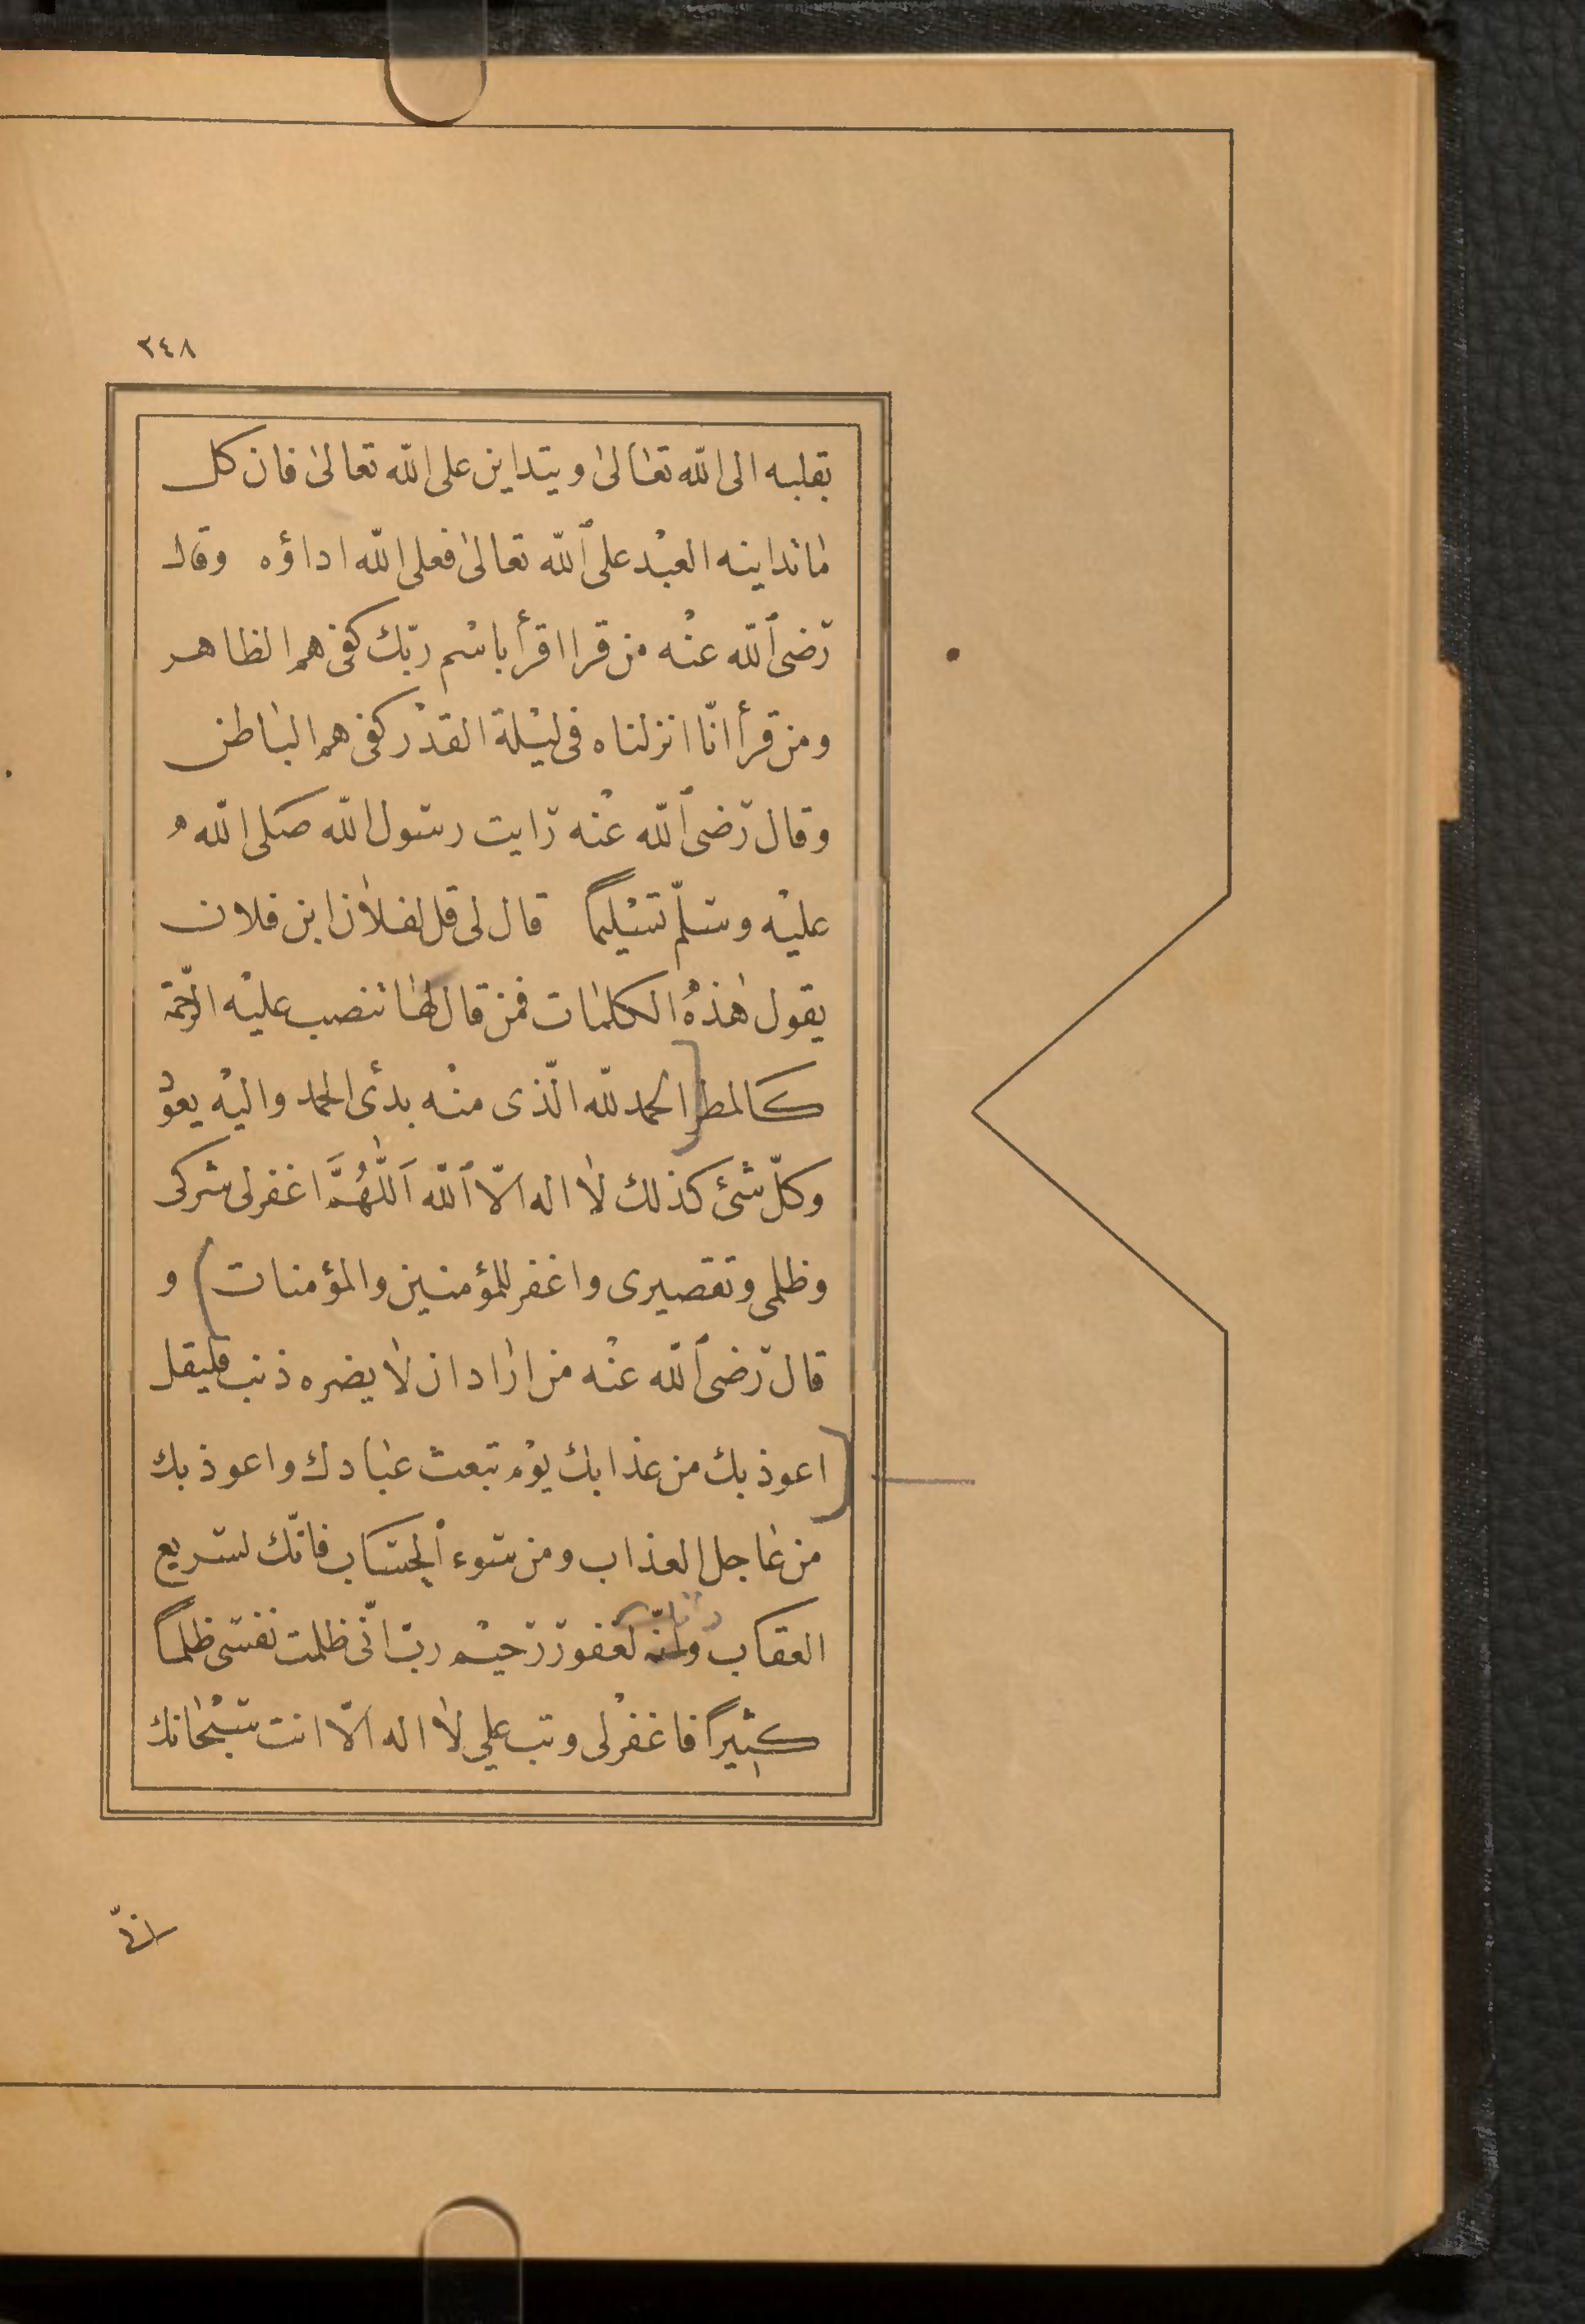 ٢٤٨
بقلبه الى الله تعٰالىٰ ويتداين على الله تعالىٰ فان كل
مٰاتداينه العبْد على ٱلله تعالىٰ فعلى الله اداؤه وقال
رضى ٱلله عنْه من قرا اقرأ باسْم ربّك كفى هم الظاهر
ومن قرأ انّا انزلناه فى ليْلة القدْر كفى هم البٰاطن
وقال رضى ٱلله عنْه رايت رسول الله صلى الله
عليْه وسلّم تسْليمًا قال لى قل لفلاٰن ابن فلان
يقول هٰذهُ الكلمٰات فمن قال لهٰا تنصب عليْه الرّحمة
كالمطر (الحمد لله الّذى منْه بدئ الحمد واليْه يعوْد
وكلّ شئ كذلك لاٰ اله الاّ ٱلله اَللّٰهُمَّ اغفر لى شركى
وظلمى وتقصيرى واغفر للمؤمنين والمؤمنات) و
قال رضى ٱلله عنْه من ارٰاد ان لاٰ يضره ذنب فليقل
(اعوذ بك من عذابك يوْم تبعث عبٰادك واعوذ بك
من عٰاجل العذاب ومن سوء ٱلحسٰاب فانّك لسريع
العقاب وانّه لغفور رحيْم ربّ انّى ظلمت نفسى ظلمًا
كثيرًا فاغفرْ لى وتب علي لاٰ اله الاّ انت سبْحٰانك
انّى